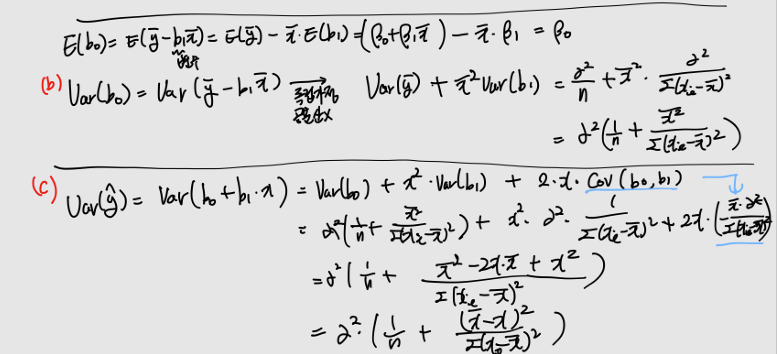 E(b₀) = E(ȳ - b₁x̄) = E(ȳ) - x̄·E(b₁) = (β₀+β₁x̄) - x̄·β₁ = β₀
(b) Var(b₀) = Var(ȳ - b₁x̄) → Var(ȳ) + x̄²Var(b₁) = σ²/n + x̄²· σ²/Σ(xᵢ-x̄)²
= σ²(1/n + x̄²/Σ(xᵢ-x̄)²)
(c) Var(ŷ) = Var(b₀+b₁·x) = Var(b₀) + x²·Var(b₁) + 2·x·Cov(b₀,b₁)
= σ²(1/n + x̄²/Σ(xᵢ-x̄)²) + x²·σ²· 1/Σ(xᵢ-x̄)² + 2x·(-x̄·σ²/Σ(xᵢ-x̄)²)
= σ²(1/n + x̄²-2x·x̄+x²/Σ(xᵢ-x̄)²)
= σ²·(1/n + (x̄-x)²/Σ(xᵢ-x̄)²)